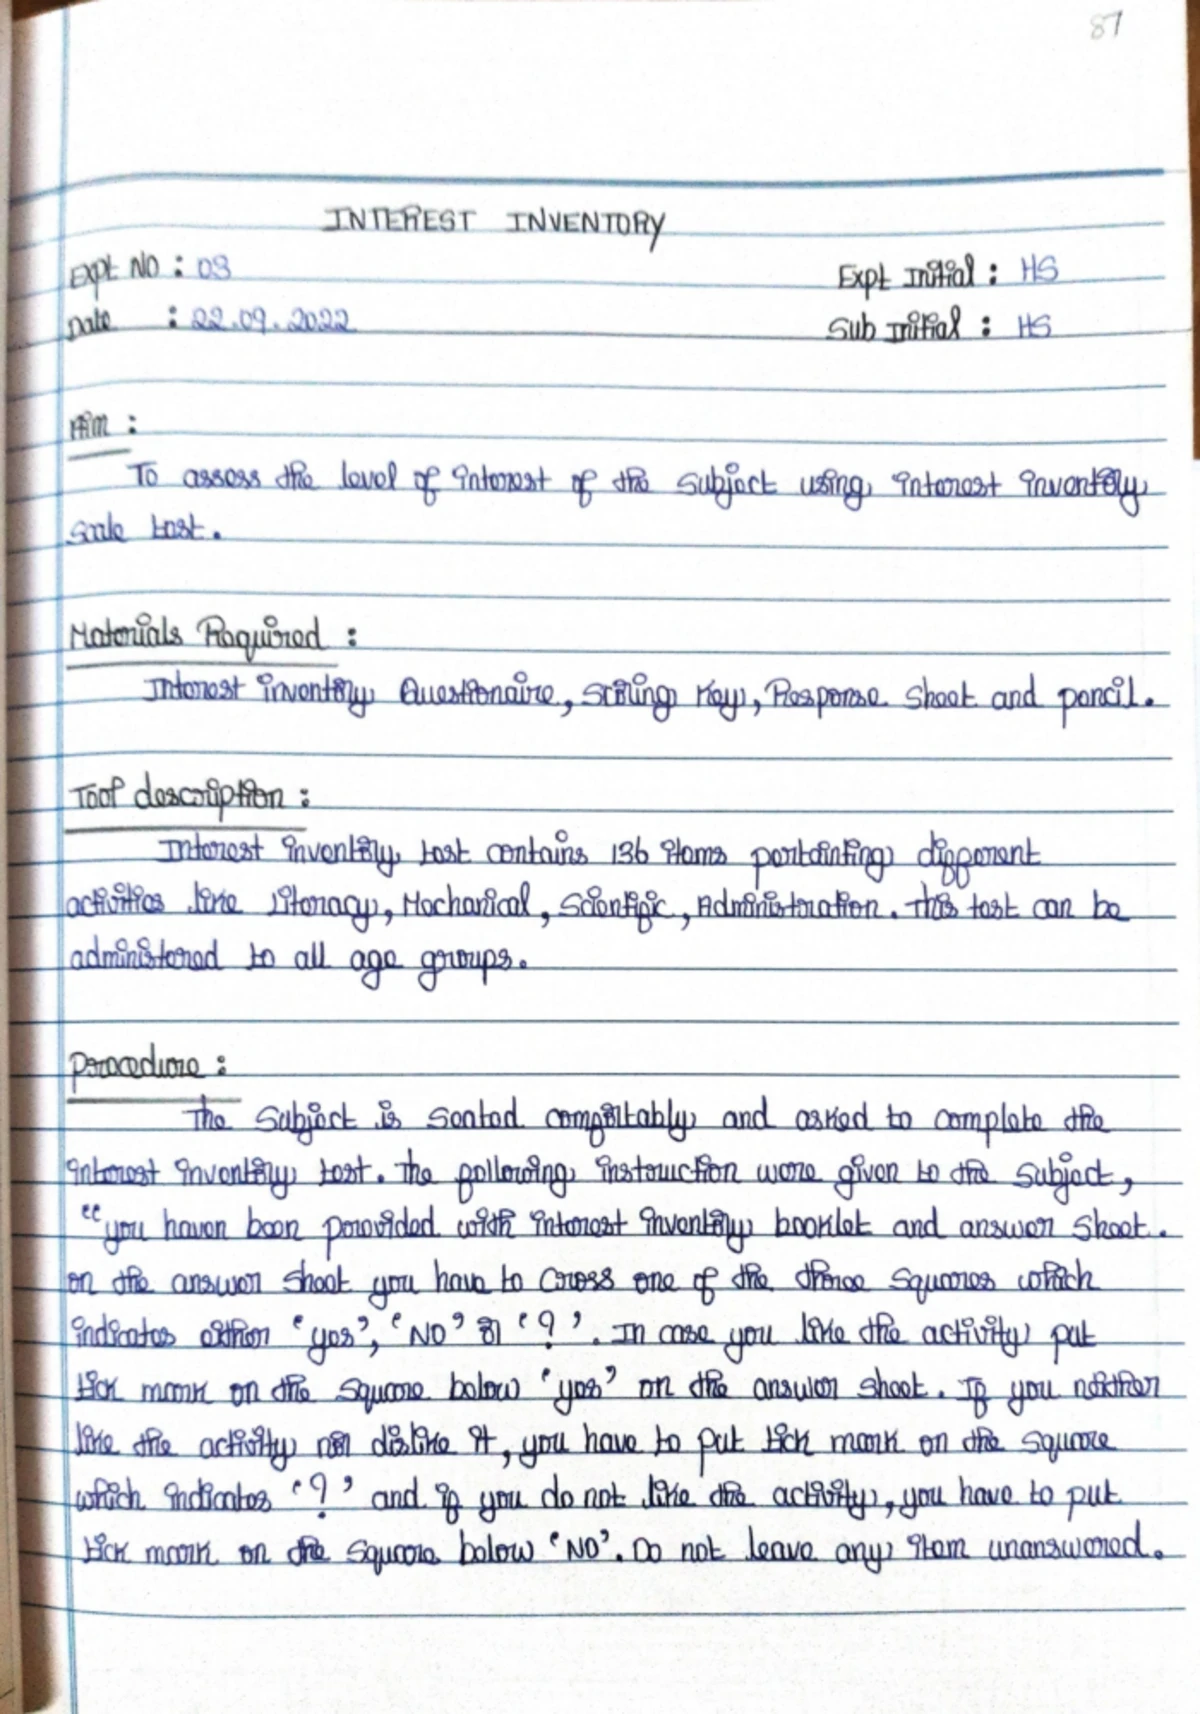 87
INTEREST INVENTORY
Expt NO : 03 Expt Initial : HS
Date : 22.09.2022 Sub Initial : HS
Aim :
To assess the level of interest of the subject using interest inventory
scale test.
Materials Required :
Interest inventory Questionaire, Scoring Key, Response sheet and pencil.
Tool description :
Interest inventory test contains 136 items pertainting different
activities like literacy, Mechanical, Scientific, Administration. This test can be
administered to all age groups.
Procedure :
The subject is seated comfortably and asked to complete the
interest inventory test. The following instruction were given to the subject,
"you haven been provided with interest inventory booklet and answer sheet.
on the answer sheet you have to cross one of the three squares which
indicates either 'yes', 'NO' or '?'. In case you like the activity put
tick mark on the square below 'yes' on the answer sheet. If you neither
like the activity nor dislike it, you have to put tick mark on the square
which indicates '?' and if you do not like the activity, you have to put
tick mark on the square below 'NO'. Do not leave any item unanswered.